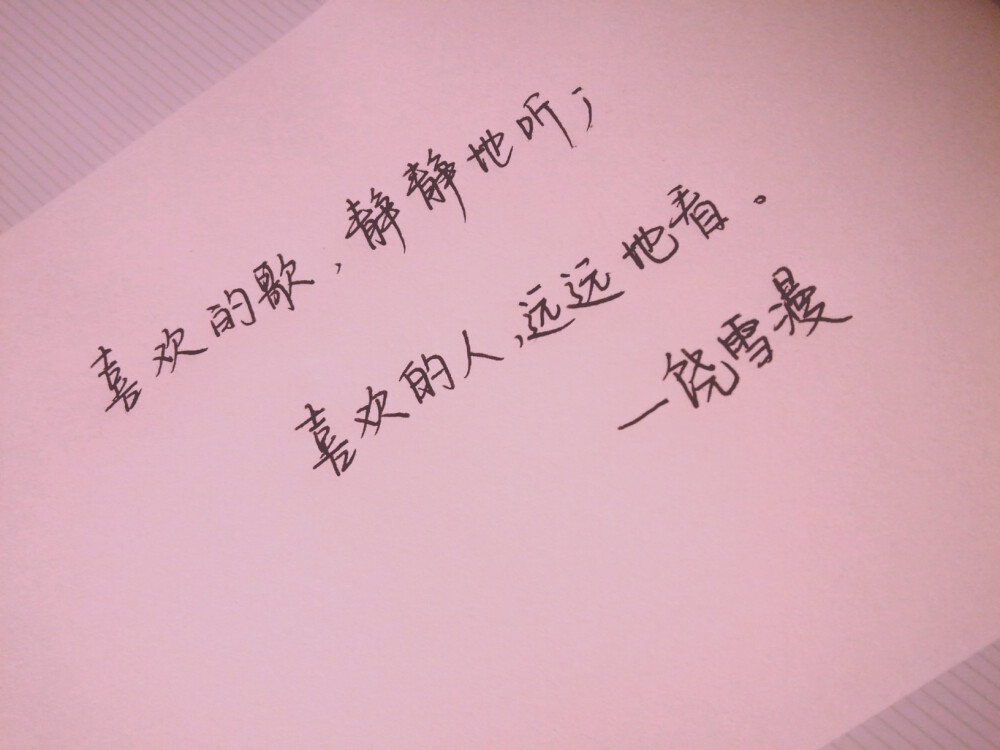 喜欢的歌，静静地听；
喜欢的人，远远地看。
—饶雪漫